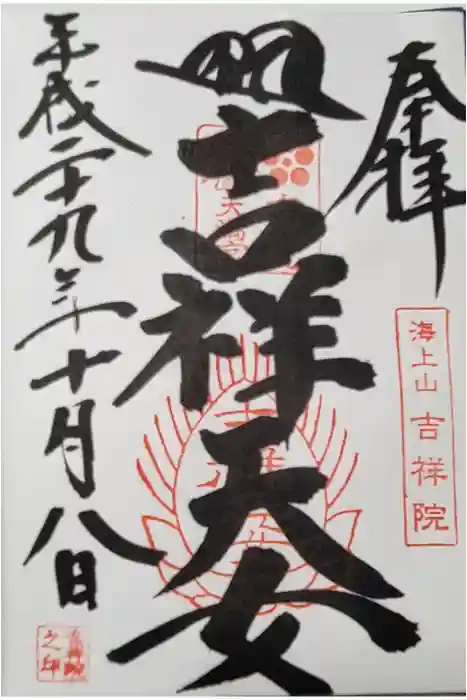 奉拝
海上山 吉祥院
吉祥天女
平成二十九年十月八日